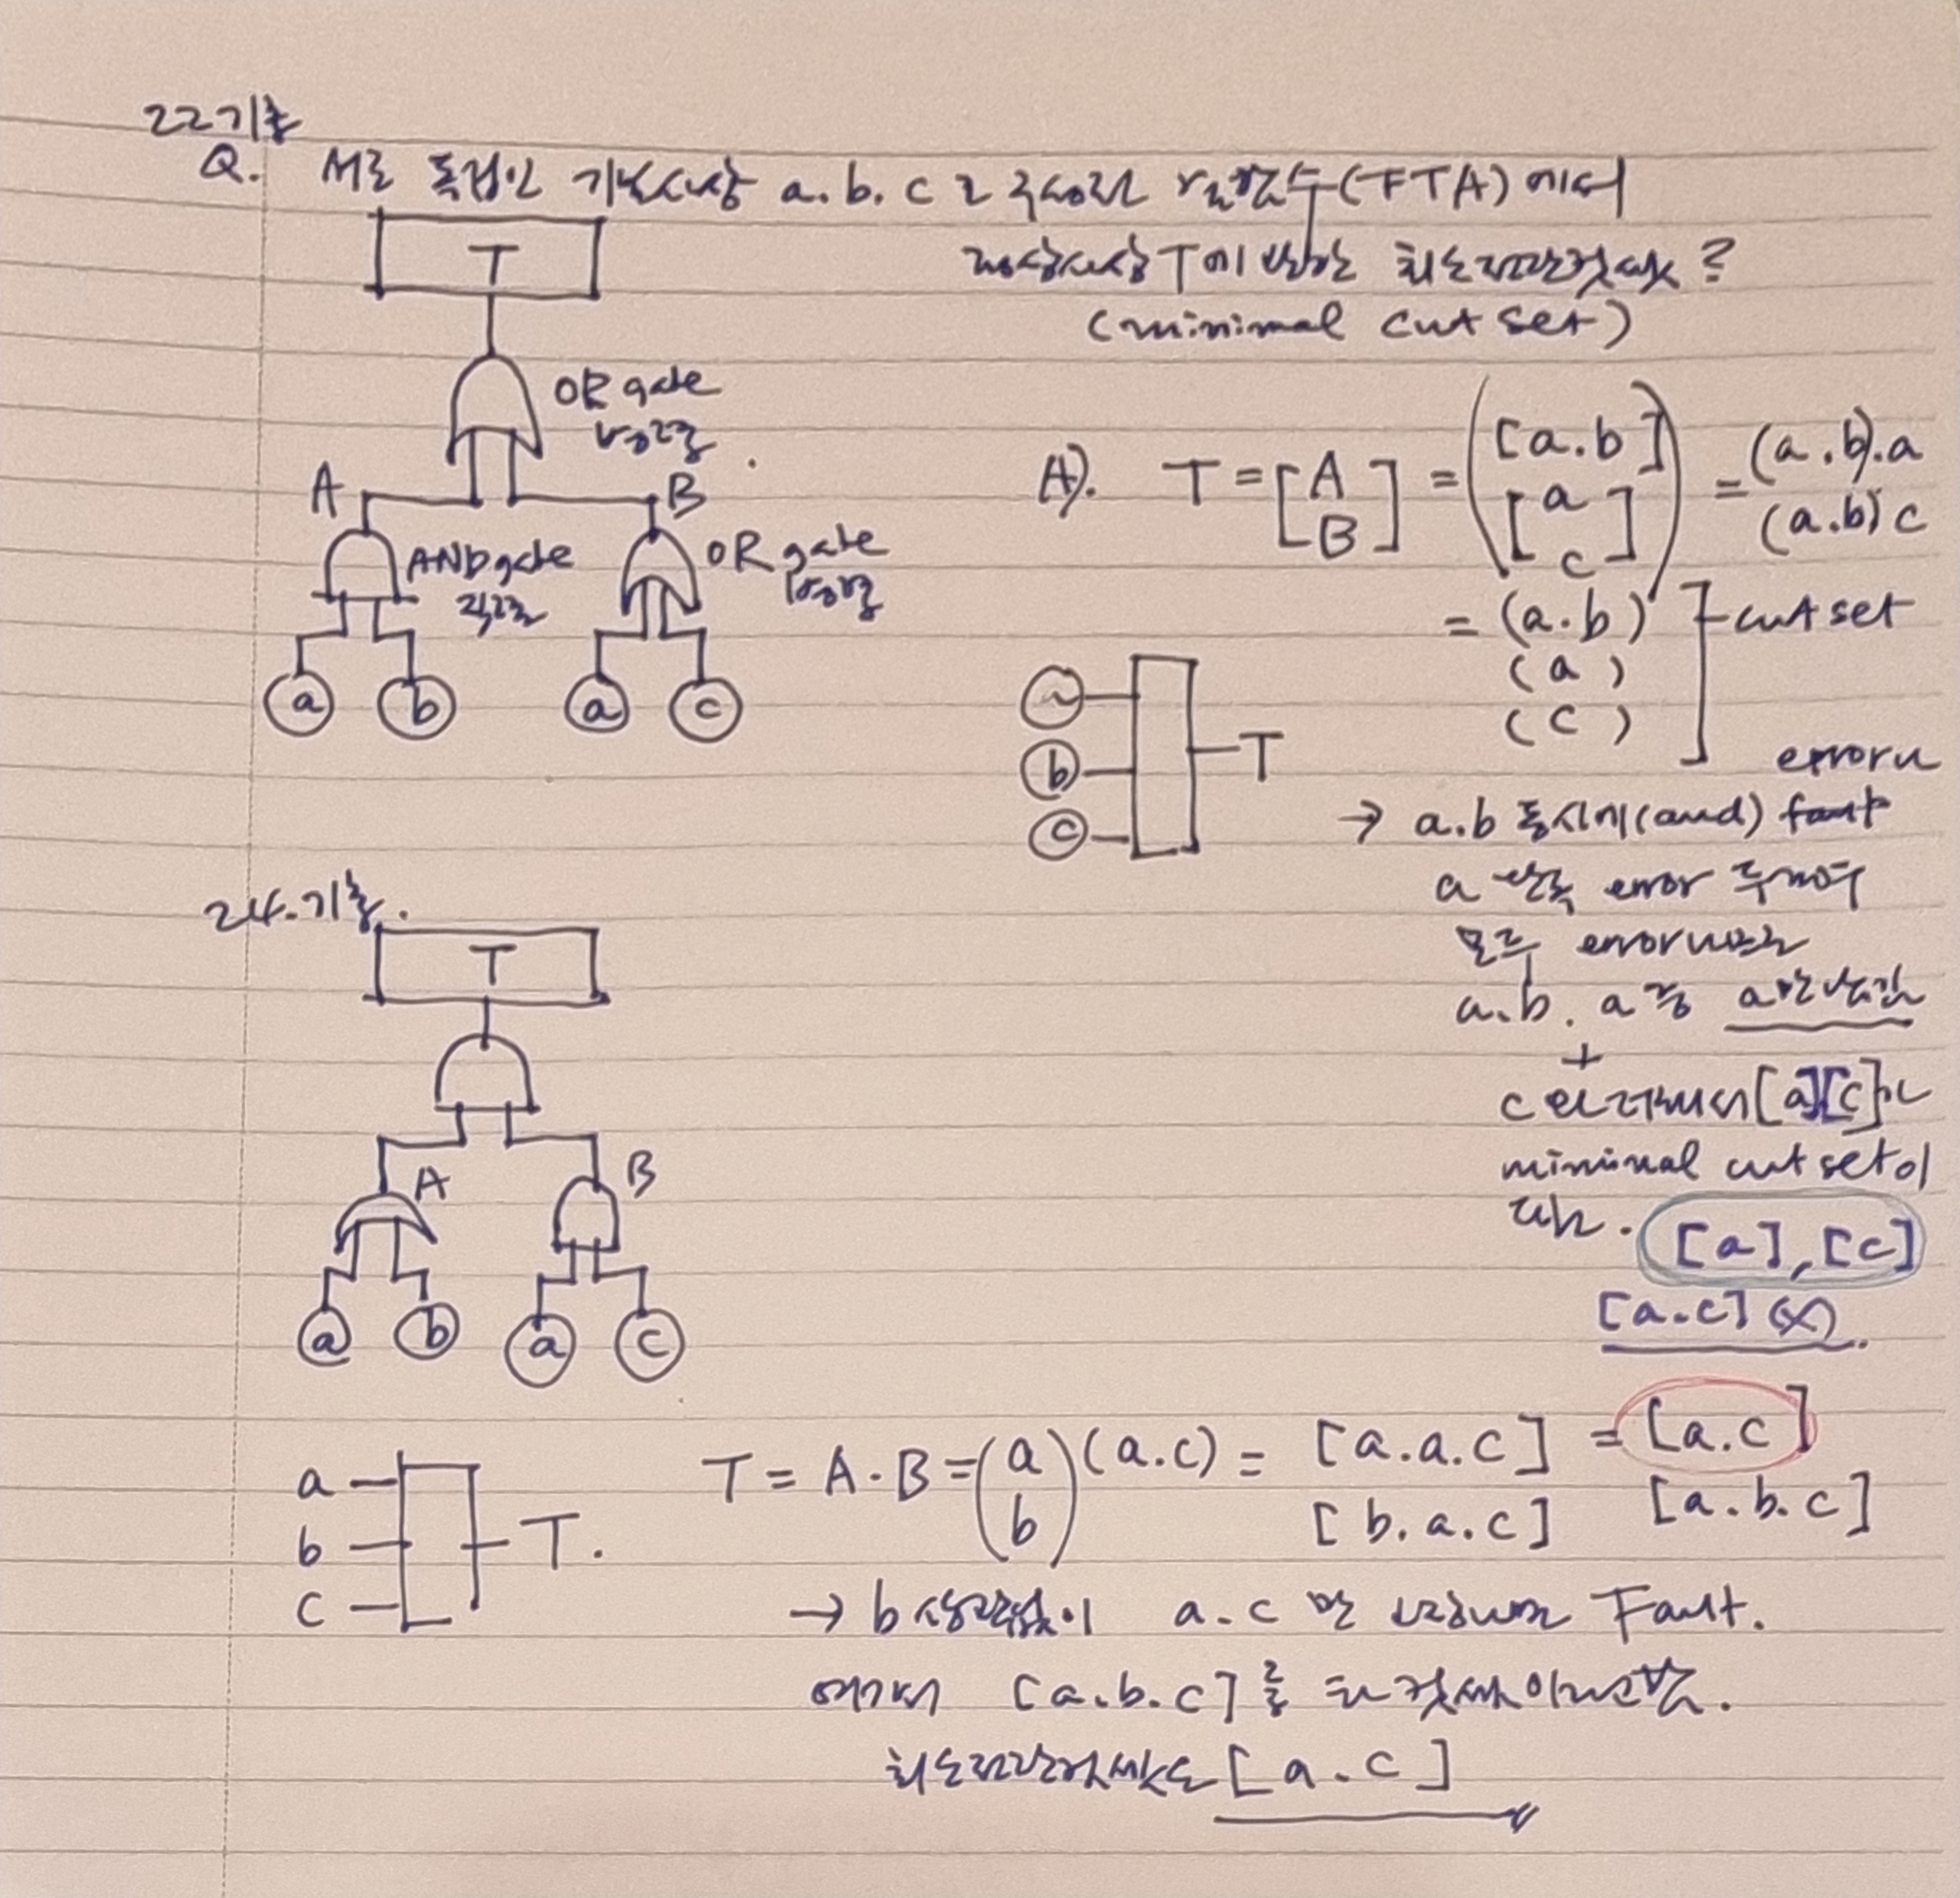 22기출
Q. 서로 독립인 기본사상 a.b.c로 구성된 결함수(FTA)에서
정상사상T에 관한 최소절단컷셋?
(minimal cut set)
T
OR gate
병렬
A
B
AND gate
직렬
OR gate
병렬
a b a c
A). T = [A B] = ([a.b] [a c]) = (a.b).a (a.b)c
= (a.b)
(a)
(c)
cut set
a
b
c
T
error나
→ a.b 동시에(and) fault
a 단독 error 두개여
모두 error나므로
a.b. a중 a만남김
+
c
[a][c]가
minimal cut set이
[a], [c]
[a.c] (x).
24.기출.
T
A
B
a b a c
a
b
c
T.
T = A·B = (a b)(a.c) = [a.a.c] = [a.c]
[b.a.c] [a.b.c]
→ b 상관없이 a.c 만 Fault.
여기서 [a.b.c]를 컷셋이라고함.
최소절단컷셋은 [a.c]